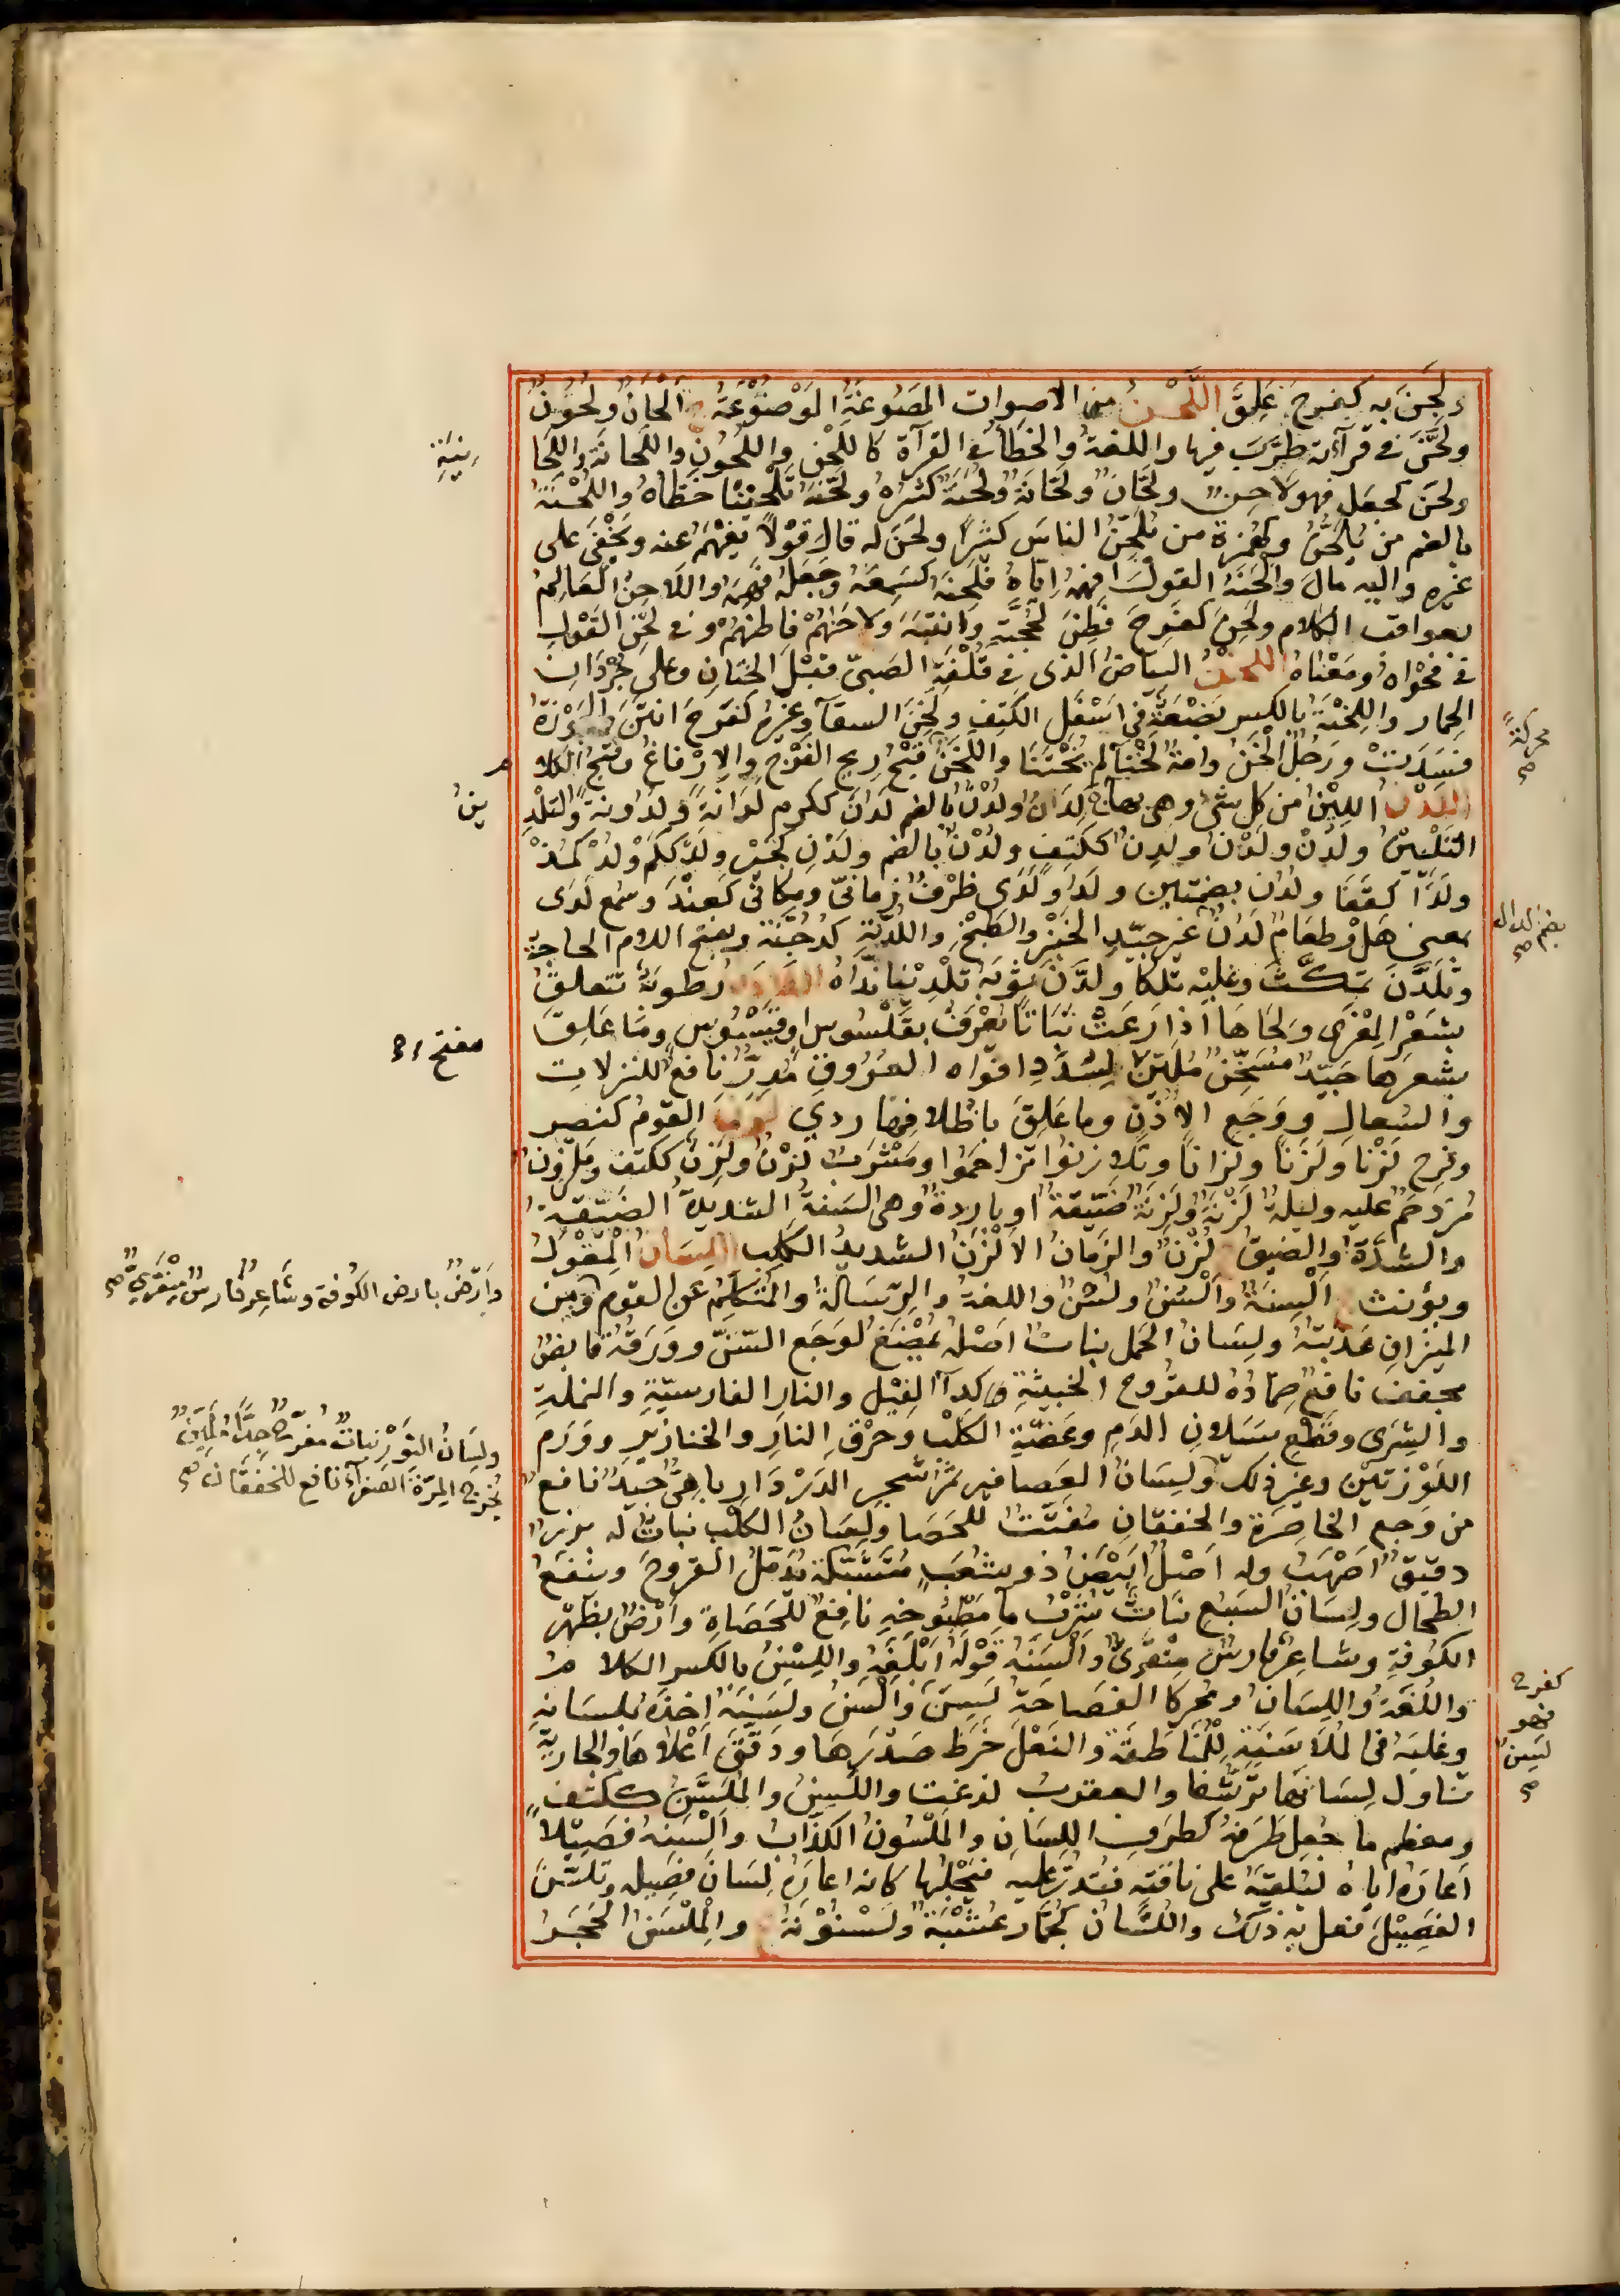 ولَجِنَ به كفرح عَلِقَ اللَّحْنُ من الاصوات المَصُوغَةُ المَوْضُوْعَةُ ج اَلْحَانٌ ولُحُوْنٌ
ولَحَّنَ في قرآءته طَرَّبَ فيها واللغةُ والخَطَأ في القرآءة كاللَّحْن واللُّحُوْنِ واللَّحَانَةِ واللَّحَا
نِيَةِ
ولَحَنَ كجعل فهو لاحِنٌ ولَحَّانٌ ولَحَّانَةٌ ولُحَنَةٌ كثيرُهُ ولَحَّنَهُ تَلْحِيْنًا خَطَّأهُ واللُّحْنَةُ
بالضم من يُلَحَّنُ وكهُمَزة من يُلَحِّنُ الناسَ كثيرًا ولَحَنَ له قال قَوْلًا يَفْهَمُهُ عنه ويَخْفَى على
غيره واليه مالَ وَالْحَنَهُ القولَ افهمهُ ايّاهُ فَلَحِنَهُ كسَمِعَهُ وجَعَلَهُ فَهِمَهُ واللَاحِنُ العَالِمُ
بعواقب الكلام ولَحِنَ كفَرِحَ فَطِنَ لحُجَّتِهِ وانْتَبَهَ ولاحَنَهُمْ فاطَنَهُمْ و في لَحْنِ القَوْلِ
في فَحْوَاهُ ومَعْنَاهُ اللخنُ البياضُ الذى في قُلْفَةِ الصَبىّ قبْلَ الخِتَانِ وعلى جُرْدَانِ
محركةً صح
الحمار واللِّخْنَةُ بالكسر بَضْعَةٌ في اَسْفَلِ الكَتِفِ ولَخِنَ السقآءُ وغيرُهُ كفَرِحَ انتَنَ والجَوْزَةُ
فَسَدَتْ ورَجُلٌ الْخَنُ وامةٌ لَخْنَآءُ لم يُخْتَنَا واللَّخَنُ قُبْحُ ريح الفَرْجِ والاِرْفَاغُ وقُبْحُ الكلا
م
اللَّدْنُ اللَيِّنُ من كل شئ وهى بهاء ج لِدَانٌ ولُدْنٌ بالضم لَدُنَ ككرم لَدَانَةً ولُدُونةً والتَلْدِ
ينُ
التَلْيينُ ولَدُنْ ولَدْنُ ولَدِنْ ككَتِفٍ ولُدْنُ بالضم ولَدْنِ كجَيْرِ ولَدْ ككَمْ ولُدْ كمُذْ
ولَدًا كقَفًا ولُدُنْ بضمتين ولَدْ ولَدَى ظَرْفٌ زمانىّ ومكانىّ كعِنْدَ وسُمع لَدَى
بضم الدال صح
بمعنى هَلْ وطعَامٌ لَدُنٌ غير جيّد الخَبْزِ والطَبْخِ واللُدُنَّةِ كدُجُنَّةٍ وبفتح اللام الحاجة
وتَلَدَّنَ تمكّثَ وعليْه تَلَكَّأ ولَدَّنَ ثَوْبَهُ تَلْدِيْنا نَدَّاهُ اللاذَنُ رطوبةٌ تتعلقُ
بشَعْرِ المِعْزَى ولِحَاهَا اذا رَعَتْ نَبَاتًا يُعْرَفُ بقَلْسُوس اوقيَسْتُوس وما عَلِقَ
بشعرها جيّدٌ مُسَخِّنٌ مُلَيِّنٌ لسُدَدِ افوَاه العُرُوقِ مُدِرٌّ نافعٌ للنزلات
مفتح
والسُعالِ ووَجَعِ الاُذُنِ وما عَلِقَ باظلافها ردى لَزَنَ القومُ كنصر
وفرح لَزْنًا ولَزَنًا ولِزانًا وتَلَازنوا تزاحَمُوا ومَشْرَبٌ لَزْنٌ ولَزِنٌ ككتف ومَلْزُوْنٌ
مُزدحَمٌ عليه وليلةٌ لَزْنَةٌ ولَزِنَةٌ ضَيّقةٌ او باردةٌ وهى السَنةُ الشديدةُ الضَيّقةُ
والشِدَّةُ والضيقُ ج لُزْنٌ والزمانُ الاَلْزَنُ الشديدُ الكَلِبُ اللِسَانُ المِقْوَلُ
ويؤنث ج اَلْسِنَةٌ واَلْسُنٌ ولُسْنٌ واللغةُ والرِسَالةُ والمتكلِّمُ عن القوم ومِن
وَاَرْضٌ بارض الكوفة وشَاعِر فَارِسٌ مِنْقَرِىٌّ صح
الميزانِ عَذَبَتُهُ ولِسَانُ الحَمَل نباتٌ اصْلُهُ يُمْضَغُ لوَجَع السِّنِّ ووَرَقُهُ قابضٌ
مجففٌ نافعٌ ضِمادُهُ للقُرُوحِ الخبيثةِ ولدآءِ الفِيْلِ والنارِ الفارسيّةِ والنملةِ
والشِرَى وقَطْعِ سَيَلانِ الدَمِ وعَضَّةِ الكَلْبِ وحَرْقِ النارِ والخنازيرِ ووَرَمِ
ولِسَانُ الثَوْرِ نباتٌ مُفَرِّحٌ جِدًّا مُلَيِّنٌ
يُخْرِجُ المِرّةَ الصفرآءَ نافع للخفَقَان صح
اللَوْزَتَيْن وغير ذلك ولِسَانُ العصافير ثَمَرُ شجرِ الدَرْدَارِ باهىٌّ جيّدٌ نافعٌ
من وَجع الخاصِرَةِ والخفقانِ مُفَتِّتٌ للحَصَا ولِسَانُ الكَلْب نباتٌ له بزرٌ
دقيقٌ اَصْهَبُ وله اَصْلٌ ابيَضُ ذو شُعَبٍ مُتشَبِّكة يُدْمِلُ القروحَ وينفعُ
الطحالَ ولِسَانُ السَبُعِ نبَاتٌ شُرْبُ مآءِ مَطْبُوخِهِ نافِعٌ للحَصَاةِ واَرْضٌ بظَهْر
الكوْفةِ وشاعِرٌ فارسٌ مِنْقَرىٌّ وَاَلْسَنَهُ قَوْلَهُ اَبْلَغَهُ واللِّسْنُ بالكسر الكلامُ
واللُغَةُ واللِسَانُ ومُحركًا الفصاحَة لَسِنَ وَاَلْسَنُ ولَسَنَهُ اخذهُ بلسانهِ
كفرح فهو لَسِنٌ صح
وغلبَهُ في المُلَاسَنَةِ لِلْمُنَاطَقَة والنَعْلَ خَرَطَ صَدْرَهَا ودَقَّقَ اَعْلَاهَا والجارية
تناول لِسَانَهَا تَرَشُّفا والعقربُ لدغت واللَسِنُ والمُلَسَّنُ ككتف
ومعظم ما جُعِل طَرَفهُ كطَرَف اللسَانِ والمَلْسُونُ الكذّابُ وَاَلْسَنَهُ فَصِيْلاً
اَعَارَهُ اياهُ ليُلْقِيَهُ على ناقتِهِ فتَدُرَّ عليه فيَحْلِبُها كانه اعارَهُ لِسَانَ فصِيلهِ وتَلَسَّنَ
الفصِيْلَ فعل به ذلك واللُسَّانُ كُجَمَّار عُشْبَةٌ ولَسْنُوْنَةُ ع والمِلْسَنُ الحَجَرُ